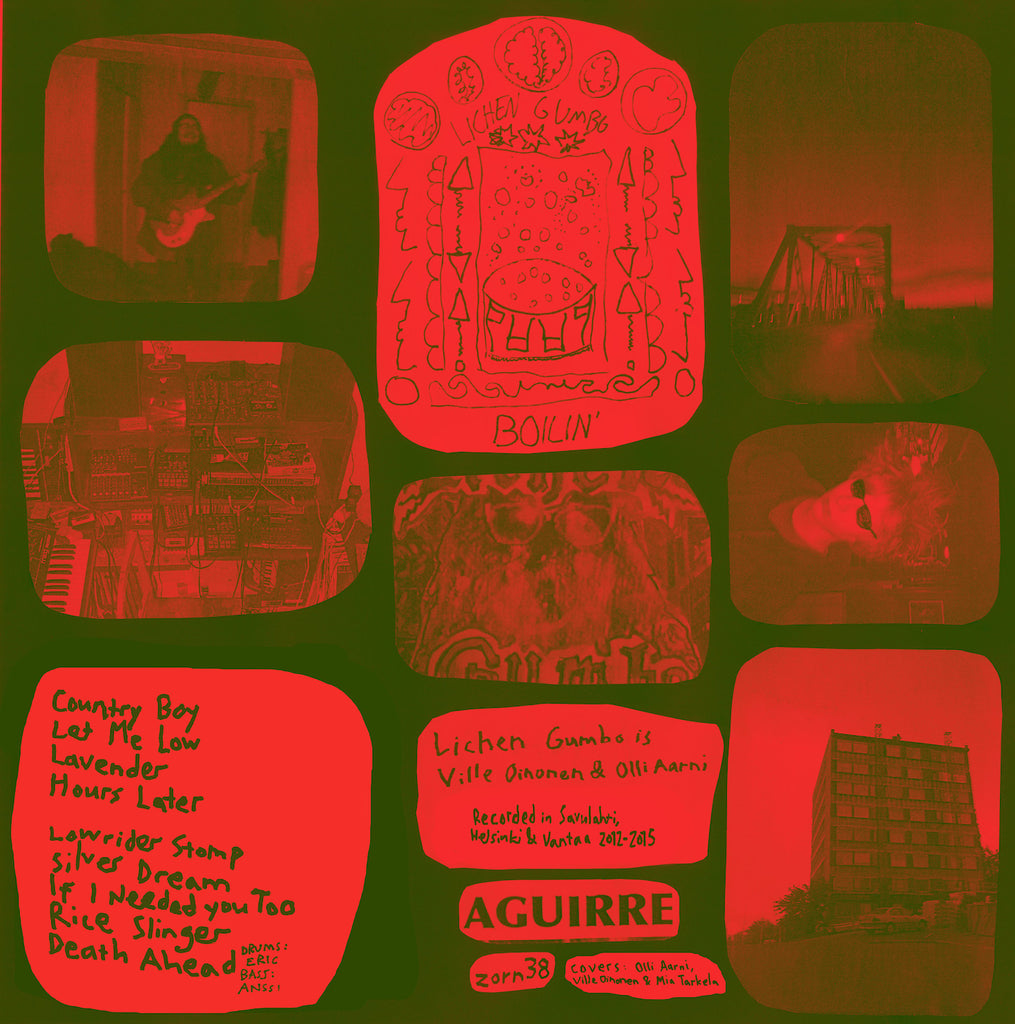 LICHEN GUMBO
BOILIN'
Gumbo
Country Boy
Let Me Low
Lavender
Hours Later
Lowrider Stomp
Silver Dream
If I Needed you Too
Rice Slinger
Death Ahead
DRUMS:
ERIC
BASS:
ANSSI
Lichen Gumbo is
Ville Oinonen & Olli Aarni
Recorded in Savulahti,
Helsinki & Vantaa 2012-2015
AGUIRRE
zorn38
covers: Olli Aarni,
Ville Oinonen & Mia Tarkela